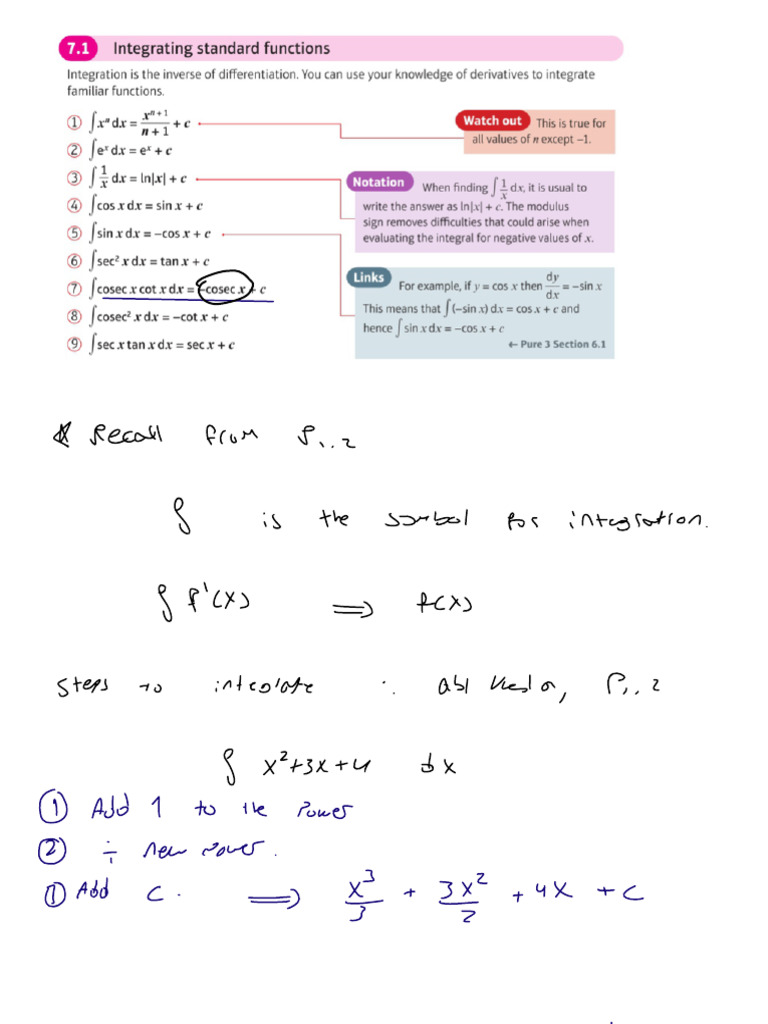 7.1 Integrating standard functions
Integration is the inverse of differentiation. You can use your knowledge of derivatives to integrate
familiar functions.
① ∫xⁿ dx = xⁿ⁺¹/(n + 1) + c
② ∫eˣ dx = eˣ + c
③ ∫1/x dx = ln|x| + c
④ ∫cos x dx = sin x + c
⑤ ∫sin x dx = −cos x + c
⑥ ∫sec² x dx = tan x + c
⑦ ∫cosec x cot x dx = −cosec x + c
⑧ ∫cosec² x dx = −cot x + c
⑨ ∫sec x tan x dx = sec x + c
Watch out This is true for
all values of n except −1.
Notation When finding ∫1/x dx, it is usual to
write the answer as ln|x| + c. The modulus
sign removes difficulties that could arise when
evaluating the integral for negative values of x.
Links For example, if y = cos x then dy/dx = −sin x
This means that ∫(−sin x) dx = cos x + c and
hence ∫sin x dx = −cos x + c
← Pure 3 Section 6.1
Recall from P1,2
∫ is the symbol for integration.
∫ f'(x) ⟹ f(x)
Steps to integrate : P1,2
∫ x²+3x+4 dx
① Add 1 to the power
② ÷ new power.
① Add C. ⟹ x³/3 + 3x²/2 + 4x + c